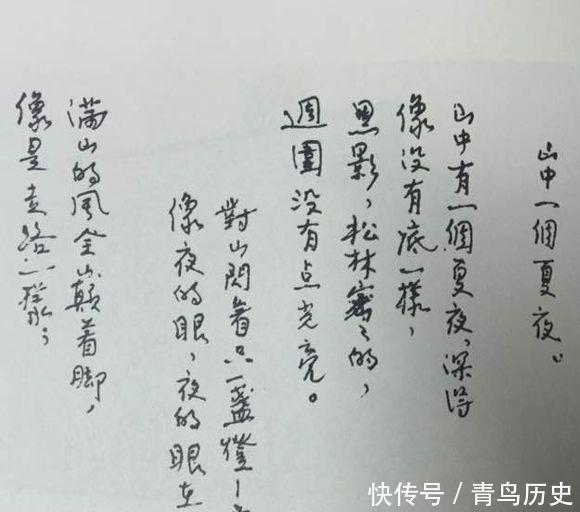 山中一個夏夜。
山中有一個夏夜，深得
像没有底一樣，
黑影，松林密密的，
週圍没有点光亮。
對山閃着只一盞燈——
像夜的眼，夜的眼在
满山的風全蹑着脚，
像是走路一樣，
快传号/青鸟历史